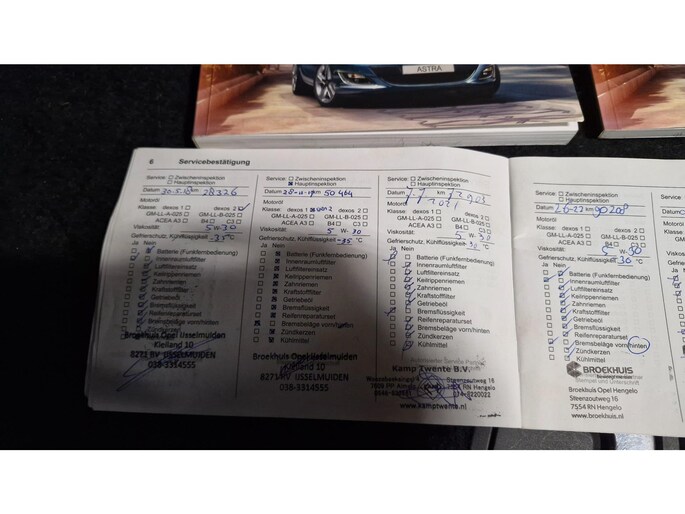 ASTRA
6 Servicebestätigung
Service: Zwischeninspektion
Hauptinspektion
Datum 30-5-18 km 28326
Motoröl
Klasse: dexos 1 dexos 2
GM-LL-A-025 GM-LL-B-025
ACEA A3 B4 C3
Viskosität: 5 W-30
Gefrierschutz, Kühlflüssigkeit -35 °C
Ja Nein
Batterie (Funkfernbedienung)
Innenraumluftfilter
Luftfiltereinsatz
Keilrippenriemen
Zahnriemen
Kraftstofffilter
Getriebeöl
Bremsflüssigkeit
Reifenreparaturset
Bremsbeläge vorn/hinten
Zündkerzen
Broekhuis Opel IJsselmuiden
Kieiland 10
8271 RV IJSSELMUIDEN
038-3314555
Service: Zwischeninspektion
Hauptinspektion
Datum km 50464
Motoröl
Klasse: dexos 1 dexos 2
GM-LL-A-025 GM-LL-B-025
ACEA A3 B4 C3
Viskosität: 5 W-30
Gefrierschutz, Kühlflüssigkeit -35 °C
Ja Nein
Batterie (Funkfernbedienung)
Innenraumluftfilter
Luftfiltereinsatz
Keilrippenriemen
Zahnriemen
Kraftstofffilter
Getriebeöl
Bremsflüssigkeit
Reifenreparaturset
Bremsbeläge vorn/hinten
Zündkerzen
Kühlmittel
Broekhuis Opel IJsselmuiden
Kieiland 10
8271 RV IJSSELMUIDEN
038-3314555
Service: Zwischeninspektion
Hauptinspektion
Datum km
Motoröl
Klasse: dexos 1 dexos 2
GM-LL-A-025 GM-LL-B-025
ACEA A3 B4 C3
Viskosität: 5 W-30
Gefrierschutz, Kühlflüssigkeit °C
Ja Nein
Batterie (Funkfernbedienung)
Innenraumluftfilter
Luftfiltereinsatz
Keilrippenriemen
Zahnriemen
Kraftstofffilter
Getriebeöl
Bremsflüssigkeit
Reifenreparaturset
Bremsbeläge vorn/hinten
Zündkerzen
Kühlmittel
Kamp Twente B.V.
Steenzoutweg 16
RN Hengelo
www.kamptwente.nl
Service: Zwischeninspektion
Hauptinspektion
Datum km 90208
Motoröl
Klasse: dexos 1 dexos 2
GM-LL-A-025 GM-LL-B-025
ACEA A3 B4 C3
Viskosität: 5 W-30
Gefrierschutz, Kühlflüssigkeit 36 °C
Ja Nein
Batterie (Funkfernbedienung)
Innenraumluftfilter
Luftfiltereinsatz
Keilrippenriemen
Zahnriemen
Kraftstofffilter
Getriebeöl
Bremsflüssigkeit
Reifenreparaturset
Bremsbeläge vorn/hinten
Zündkerzen
Kühlmittel
BROEKHUIS
Stempel und Unterschrift
Broekhuis Opel Hengelo
Steenzoutweg 16
7554 RN Hengelo
www.broekhuis.nl